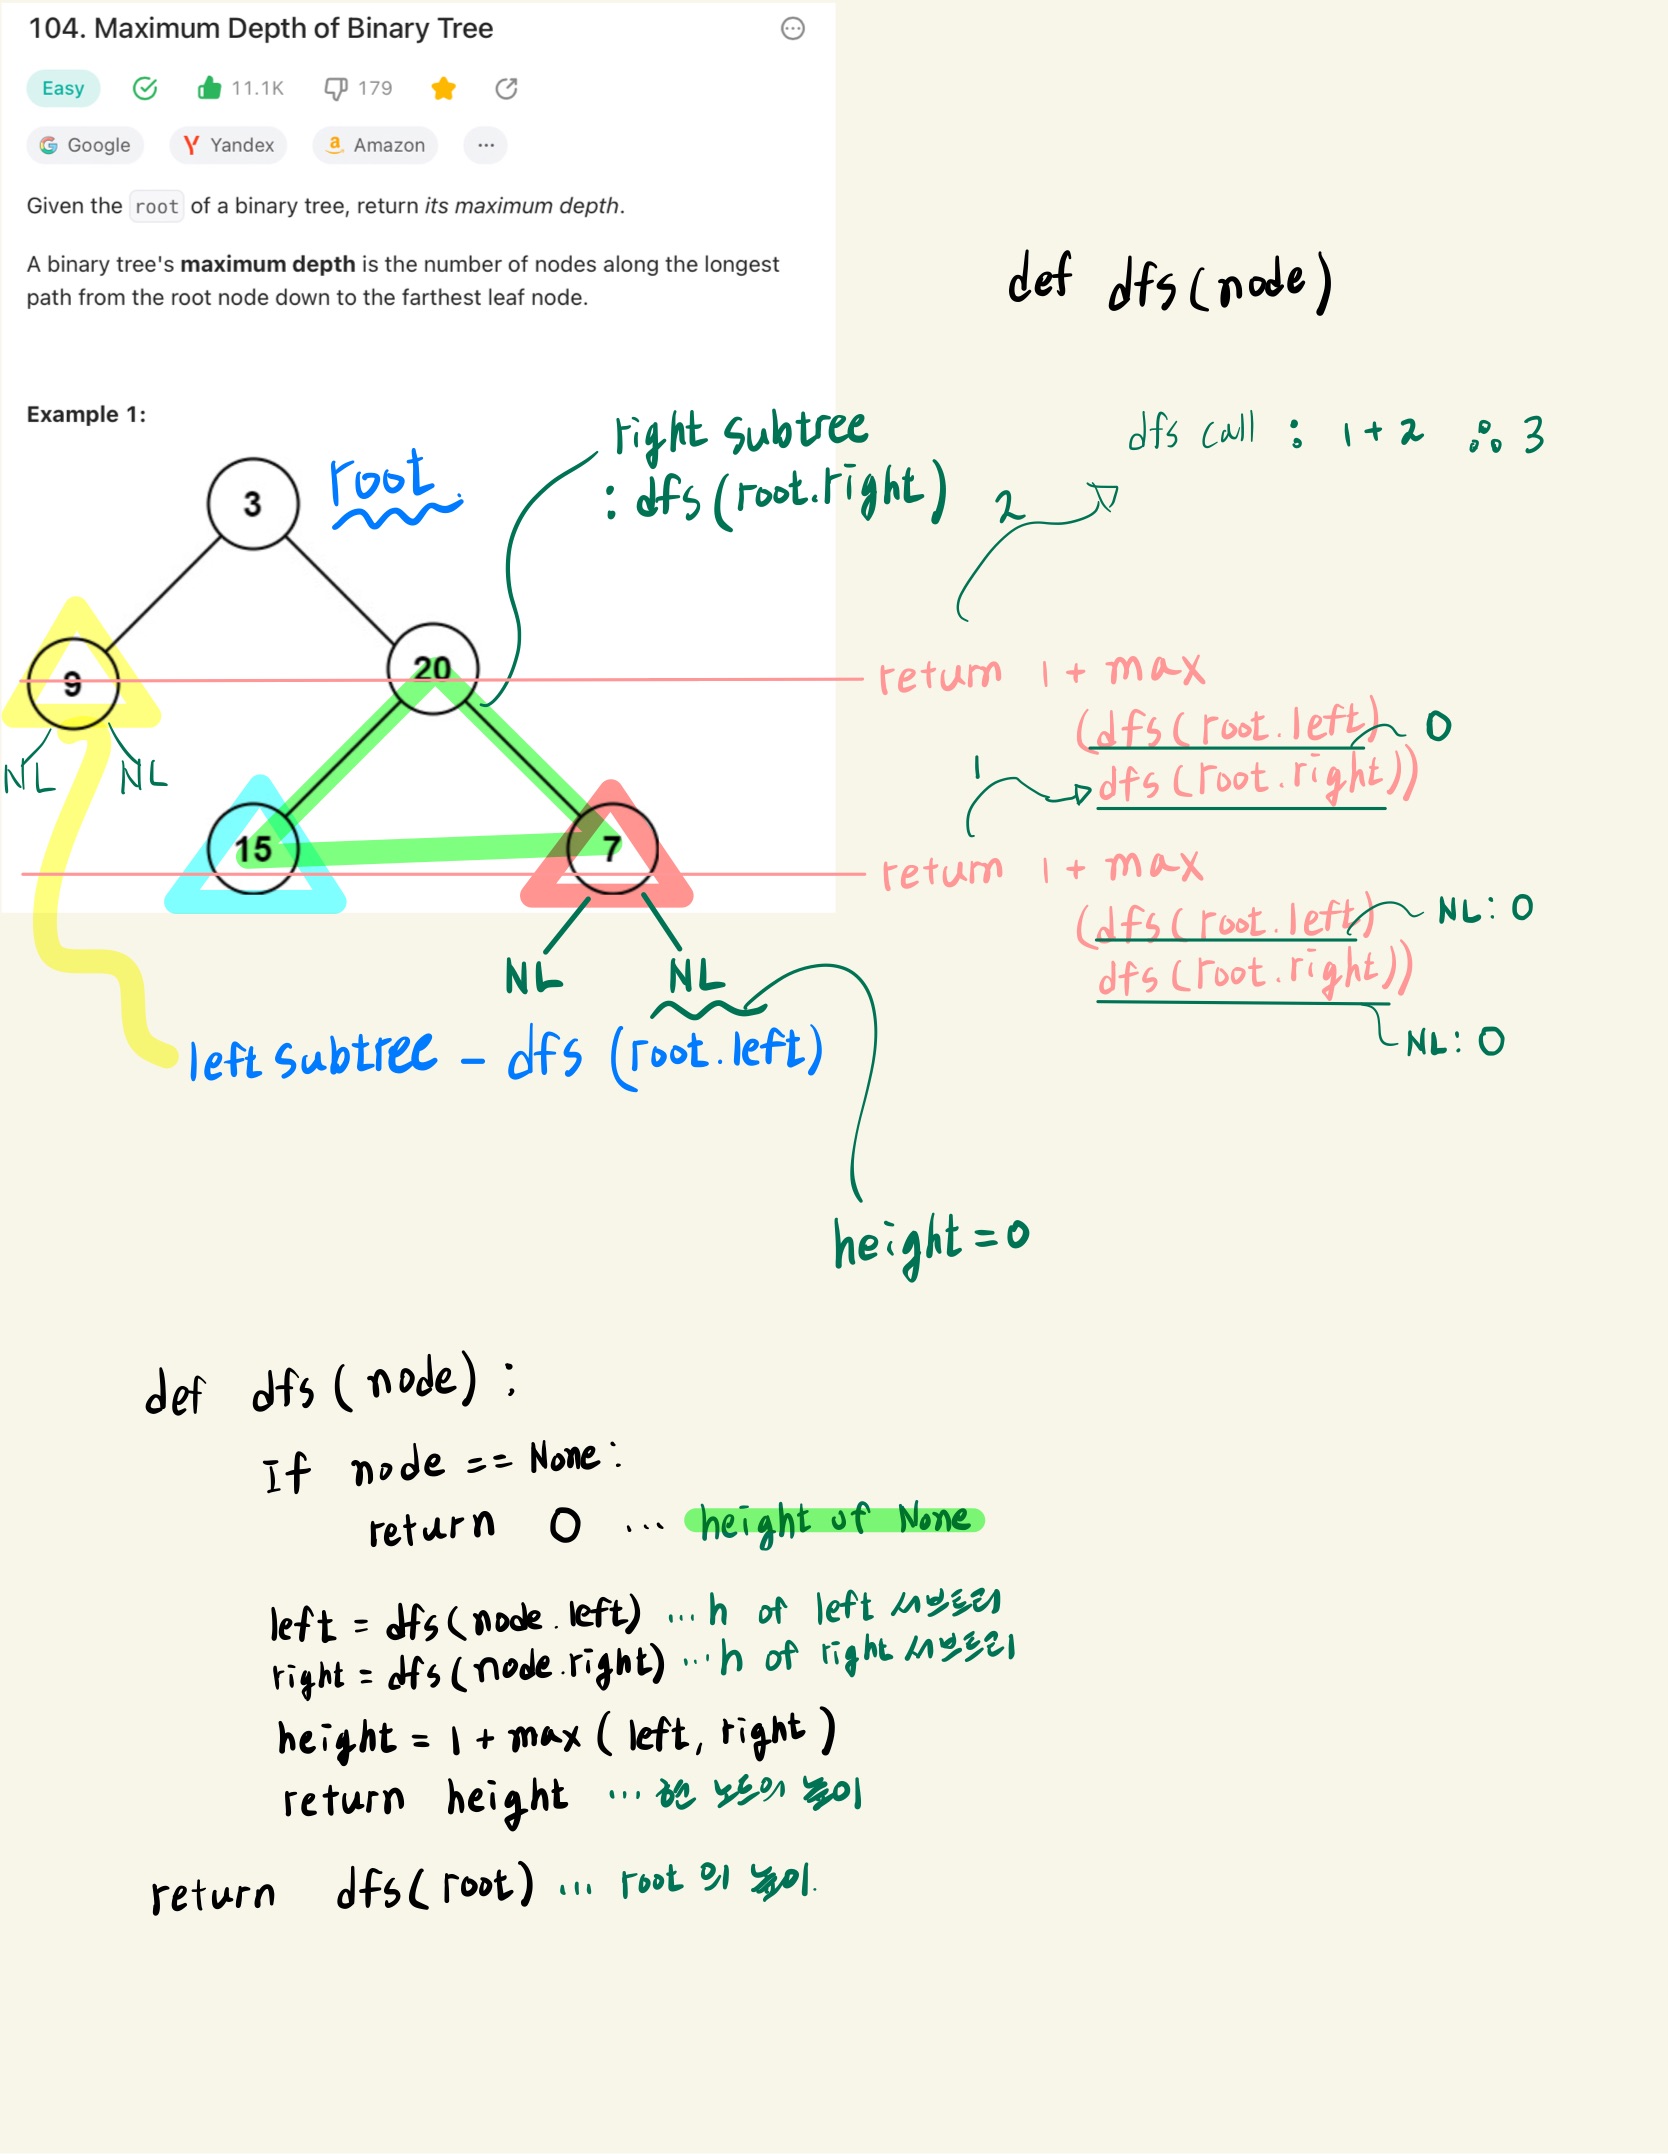 104. Maximum Depth of Binary Tree
Easy 11.1K 179
Google Yandex Amazon ...
Given the root of a binary tree, return its maximum depth.
A binary tree's maximum depth is the number of nodes along the longest
path from the root node down to the farthest leaf node.
def dfs(node)
Example 1:
right subtree
: dfs(root.right)
dfs call : 1+2 ∴ 3
3 root
2
9 20
return 1 + max
(dfs(root.left) 0
NL NL
1 dfs(root.right))
15 7
return 1 + max
(dfs(root.left) NL: 0
dfs(root.right))
NL NL
NL: 0
left subtree - dfs (root.left)
height = 0
def dfs(node):
If node == None:
return 0 ... height of None
left = dfs(node.left) ... h of left 서브트리
right = dfs(node.right) ... h of right 서브트리
height = 1 + max(left, right)
return height ... 현 노드의 높이
return dfs(root) ... root의 높이.